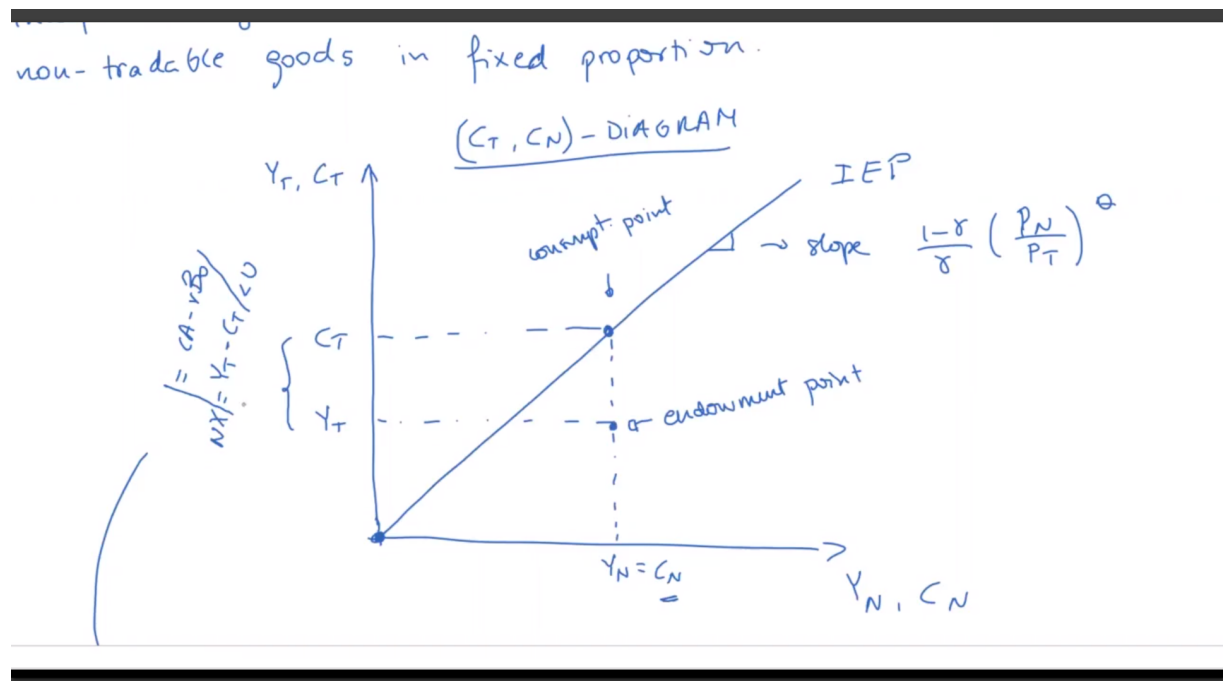 non-tradable goods in fixed proportion.
(CT, CN) - DIAGRAM
YT, CT
IEP
consumpt. point
slope (1-γ)/γ (PN/PT)^θ
= CA - rB0
NX = YT - CT < 0
CT
YT
endowment point
YN = CN
YN, CN